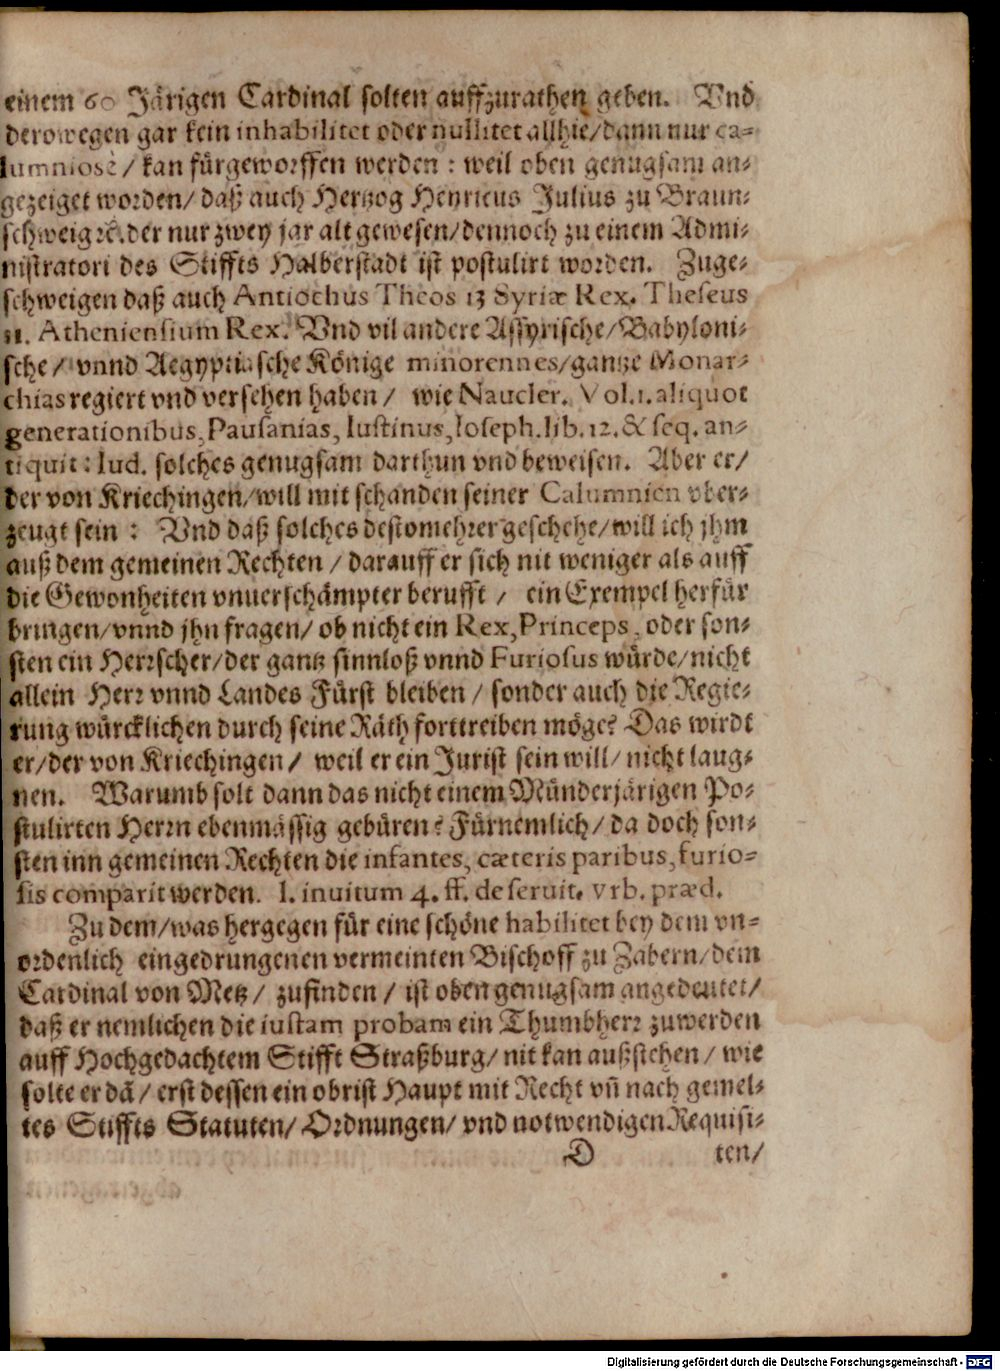 einem 60 Järigen Cardinal solten auffzurathen geben. Vnd
derowegen gar kein inhabilitet oder nullitet allhie/dann nur ca-
lumniosè/ kan fürgeworffen werden: weil oben genugsam an-
gezeiget worden/ daß auch Hertzog Henricus Julius zu Braun-
schweig ꝛc. der nur zwey jar alt gewesen/dennoch zu einem Admi-
nistratori des Stiffts Halberstadt ist postulirt worden. Zuge-
schweigen daß auch Antiochus Theos 13 Syriæ Rex. Theseus
11. Atheniensium Rex. Vnd vil andere Assyrische/Babyloni-
sche/ vnnd Aegyptiasche Könige minorennes/gantze Monar-
chias regiert vnd versehen haben/ wie Naucler. Vol.1. aliquot
generationibus, Pausanias, Iustinus, Ioseph.lib.12.& seq. an-
tiquit: Iud. solches genugsam darthun vnd beweisen. Aber er/
der von Kriechingen/will mit schanden seiner Calumnien vber-
zeugt sein: Vnd daß solches destomehrer geschehe/will ich jhm
auß dem gemeinen Rechten/ darauff er sich nit weniger als auff
die Gewonheiten vnuerschämpter berufft/ ein Exempel herfür
bringen/vnnd jhn fragen/ ob nicht ein Rex, Princeps, oder son-
sten ein Herrscher/der gantz sinnloß vnnd Furiosus würde/nicht
allein Herr vnnd Landes Fürst bleiben/ sonder auch die Regie-
rung würcklichen durch seine Räth forttreiben möge? Das wirdt
er/der von Kriechingen/ weil er ein Jurist sein will/ nicht laug-
nen. Warumb solt dann das nicht einem Münderjärigen Po-
stulirten Herrn ebenmässig gebüren? Fürnemlich/ da doch son-
sten inn gemeinen Rechten die infantes, cæteris paribus, furio-
sis comparit werden. l. inuitum 4. ff. de seruit. vrb. præd.
Zu dem/was hergegen für eine schöne habilitet bey dem vn-
ordenlich eingedrungenen vermeinten Bischoff zu Zabern/dem
Cardinal von Metz/ zufinden/ ist oben genugsam angedeutet/
daß er nemlichen die iustam probam ein Thumbherr zuwerden
auff Hochgedachtem Stifft Straßburg/ nit kan außstehen/ wie
solte er dā/ erst dessen ein obrist Haupt mit Recht vn̄ nach gemel-
tes Stiffts Statuten/ Ordnungen/ vnd notwendigen Requisi-
D ten/
Digitalisierung gefördert durch die Deutsche Forschungsgemeinschaft - DFG